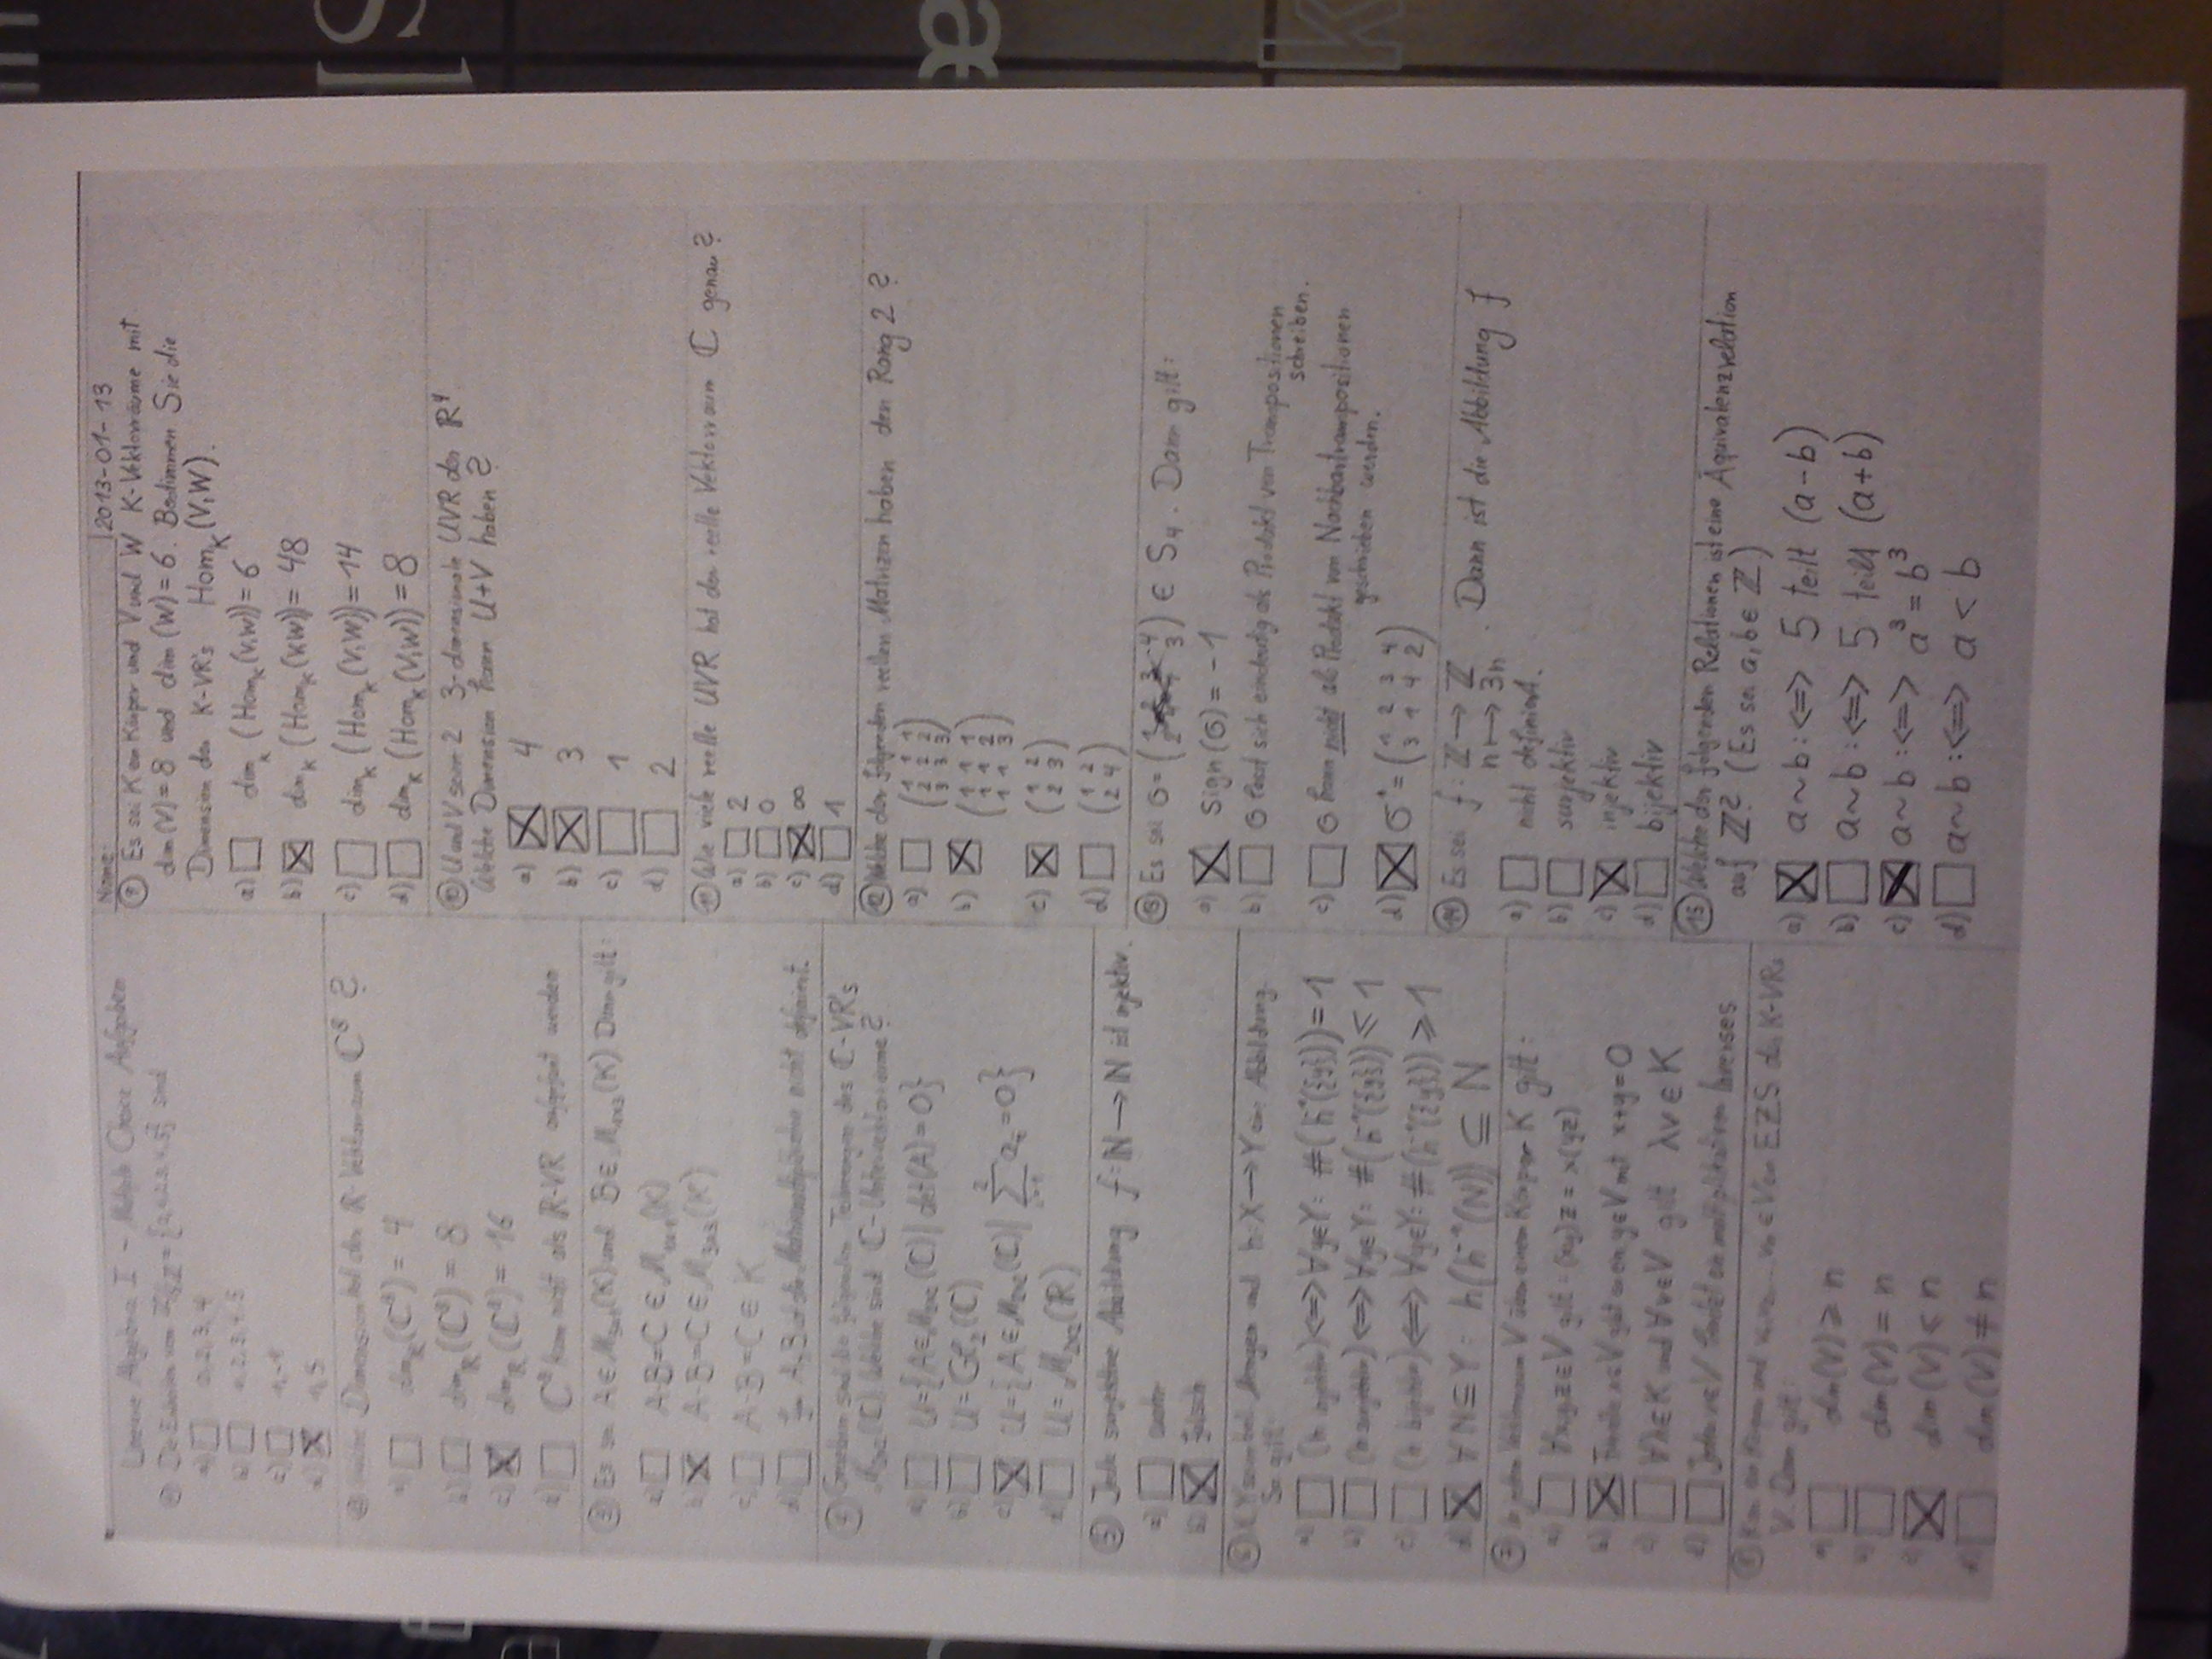 Lineare Algebra I - Multiple Choice Aufgaben
① Die Einheiten von
a) ☐ 1, 2, 3, 4
b) ☐ 1, 2, 3, 4, 5
c) ☐ 1, -1
d) ☒ 1, 5
② Welche Dimension hat der R-Vektorraum C⁸ ?
a) ☐ dim_R(C⁸) = 4
b) ☐ dim_R(C⁸) = 8
c) ☒ dim_R(C⁸) = 16
d) ☐ C⁸ kann nicht als R-VR aufgefasst werden
③ Es sei und Dann gilt:
a) ☐ A·B=C ∈
b) ☒ A·B=C ∈ M₃ₓ₃(K)
c) ☐ A·B=C ∈ K
d) ☐ Für A, B ist die Matrixmultiplikation nicht definiert.
④ Gegeben sind die folgenden Teilmengen des C-VR's
M₂ₓ₂(C). Welche sind C-Untervektorräume ?
a) ☐ U={A∈M₂ₓ₂(C) | det(A)=0}
b) ☐ U=GL₂(C)
c) ☒ U={A∈M₂ₓ₂(C) | = 0}
d) ☐ U= M₂ₓ₂(R)
⑤ Jede surjektive Abbildung f: N → N ist injektiv.
a) ☐ wahr
b) ☒ falsch
⑥ X, Y seien Mengen und h: X → Y eine Abbildung.
So gilt:
a) ☐ (h injektiv) <=> ∀y∈Y: #(h⁻¹({y})) = 1
b) ☐ (h surjektiv) <=> ∀y∈Y: #(h⁻¹({y})) ≤ 1
c) ☐ (h bijektiv) <=> ∀y∈Y: #(h⁻¹({y})) ≥ 1
d) ☒ ∀ N ⊆ Y: h(h⁻¹(N)) ⊆ N
⑦ In jedem Vektorraum V über einem Körper K gilt:
a) ☐ ∀x,y,z∈V gilt: (xy)z = x(yz)
b) ☒ Für alle x∈V gibt es ein y∈V mit x+y=0
c) ☐ ∀λ∈K und ∀v∈V gilt λv ∈ K
d) ☐ Jedes v∈V besitzt ein multiplikatives Inverses
⑧ K sei ein Körper und v₁, v₂, ... vₙ ∈ V ein EZS des K-VRs
V. Dann gilt:
a) ☐ dim(V) ≥ n
b) ☐ dim(V) = n
c) ☒ dim(V) ≤ n
d) ☐ dim(V) ≠ n
Name: 2013-01-13
⑨ Es sei K ein Körper und V und W K-Vektorräume mit
dim(V) = 8 und dim(W) = 6. Bestimmen Sie die
Dimension des K-VR's Hom_K(V,W).
a) ☐ dim_K(Hom_K(V,W)) = 6
b) ☒ dim_K(Hom_K(V,W)) = 48
c) ☐ dim_K(Hom_K(V,W)) = 14
d) ☐ dim_K(Hom_K(V,W)) = 8
⑩ U und V seien 2 3-dimensionale UVR des R⁴.
Welche Dimension kann U+V haben ?
a) ☒ 4
b) ☒ 3
c) ☐ 1
d) ☐ 2
⑪ Wie viele reelle UVR hat der reelle Vektorraum C genau ?
a) ☐ 2
b) ☐ 0
c) ☒ ∞
d) ☐ 1
⑫ Welche der folgenden reellen Matrizen haben den Rang 2 ?
a) ☐ (1 1 1 / 2 2 2 / 3 3 3)
b) ☒ (1 1 1 / 1 1 2 / 1 1 3)
c) ☒ (1 2 / 2 3)
d) ☐ (1 2 / 2 4)
⑬ Es sei σ = ∈ S₄. Dann gilt:
a) ☒ sign(σ) = -1
b) ☐ σ lässt sich eindeutig als Produkt von Transpositionen
schreiben.
c) ☐ σ kann nicht als Produkt von Nachbartranspositionen
geschrieben werden.
d) ☒ σ⁻¹ = (1 2 3 4 / 3 1 4 2)
⑭ Es sei f: Z → Z . Dann ist die Abbildung f
n ↦ 3n
a) ☐ nicht definiert.
b) ☐ surjektiv
c) ☒ injektiv
d) ☐ bijektiv
⑮ Welche der folgenden Relationen ist eine Äquivalenzrelation
auf Z? (Es sei a, b ∈ Z)
a) ☒ a ~ b :<=> 5 teilt (a-b)
b) ☐ a ~ b :<=> 5 teilt (a+b)
c) ☒ a ~ b :<=> a³ = b³
d) ☐ a ~ b :<=> a < b